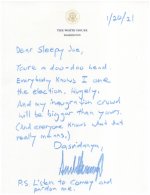 THE WHITE HOUSE
WASHINGTON
1/20/21
Dear Sleepy Joe,
You're a doo-doo head
Everybody knows I won
the election. Hugely.
And my inauguration crowd
will be bigger than yours.
(And everyone knows what that
really means.)
Dasvidanya,
P.S. Listen to Comey and
pardon me.